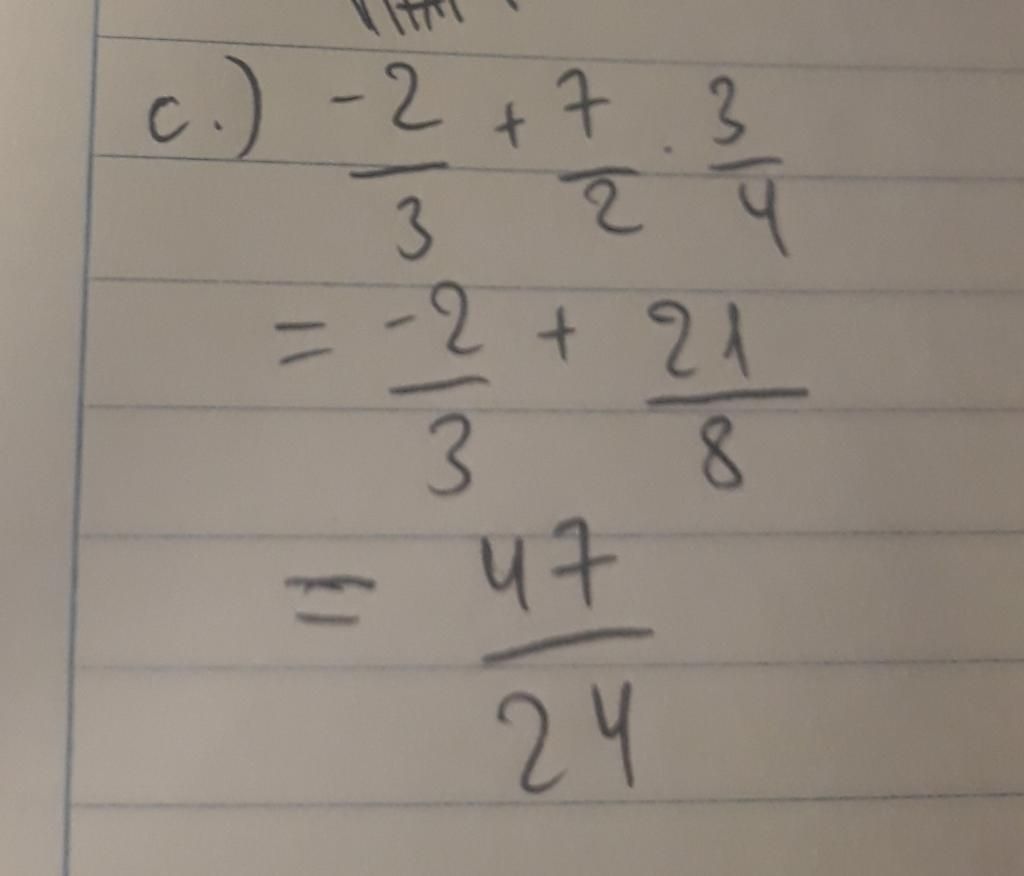 c.) -2/3 + 7/2 . 3/4
= -2/3 + 21/8
= 47/24